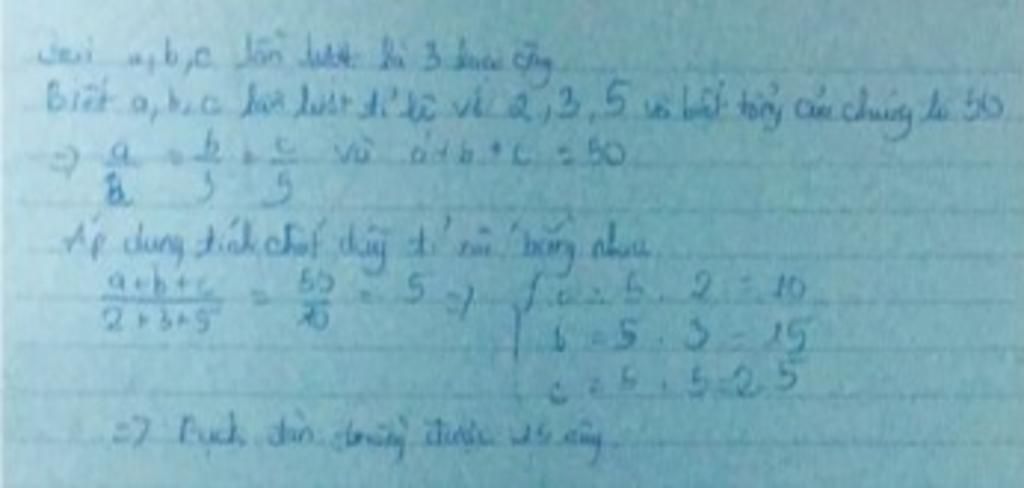 a, b, c lần lượt là 3
Biết a, b, c lần lượt tỉ lệ với 2, 3, 5 và biết tổng của chúng là 50
=> a/2 = b/3 = c/5 và a + b + c = 50
Áp dụng tính chất dãy tỉ số bằng nhau
(a+b+c)/(2+3+5) = 50/10 = 5 => { = 5 . 2 = 10
b = 5 . 3 = 15
c = 5 . 5 = 25
=> được cây